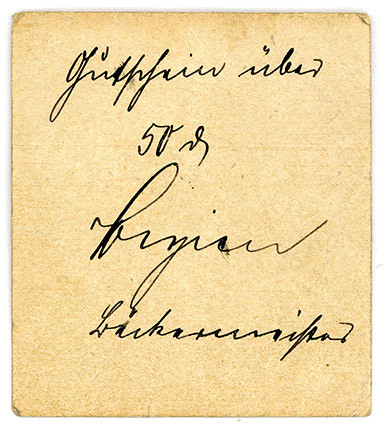 Gutschein über
50 ₰
Bäckermeister